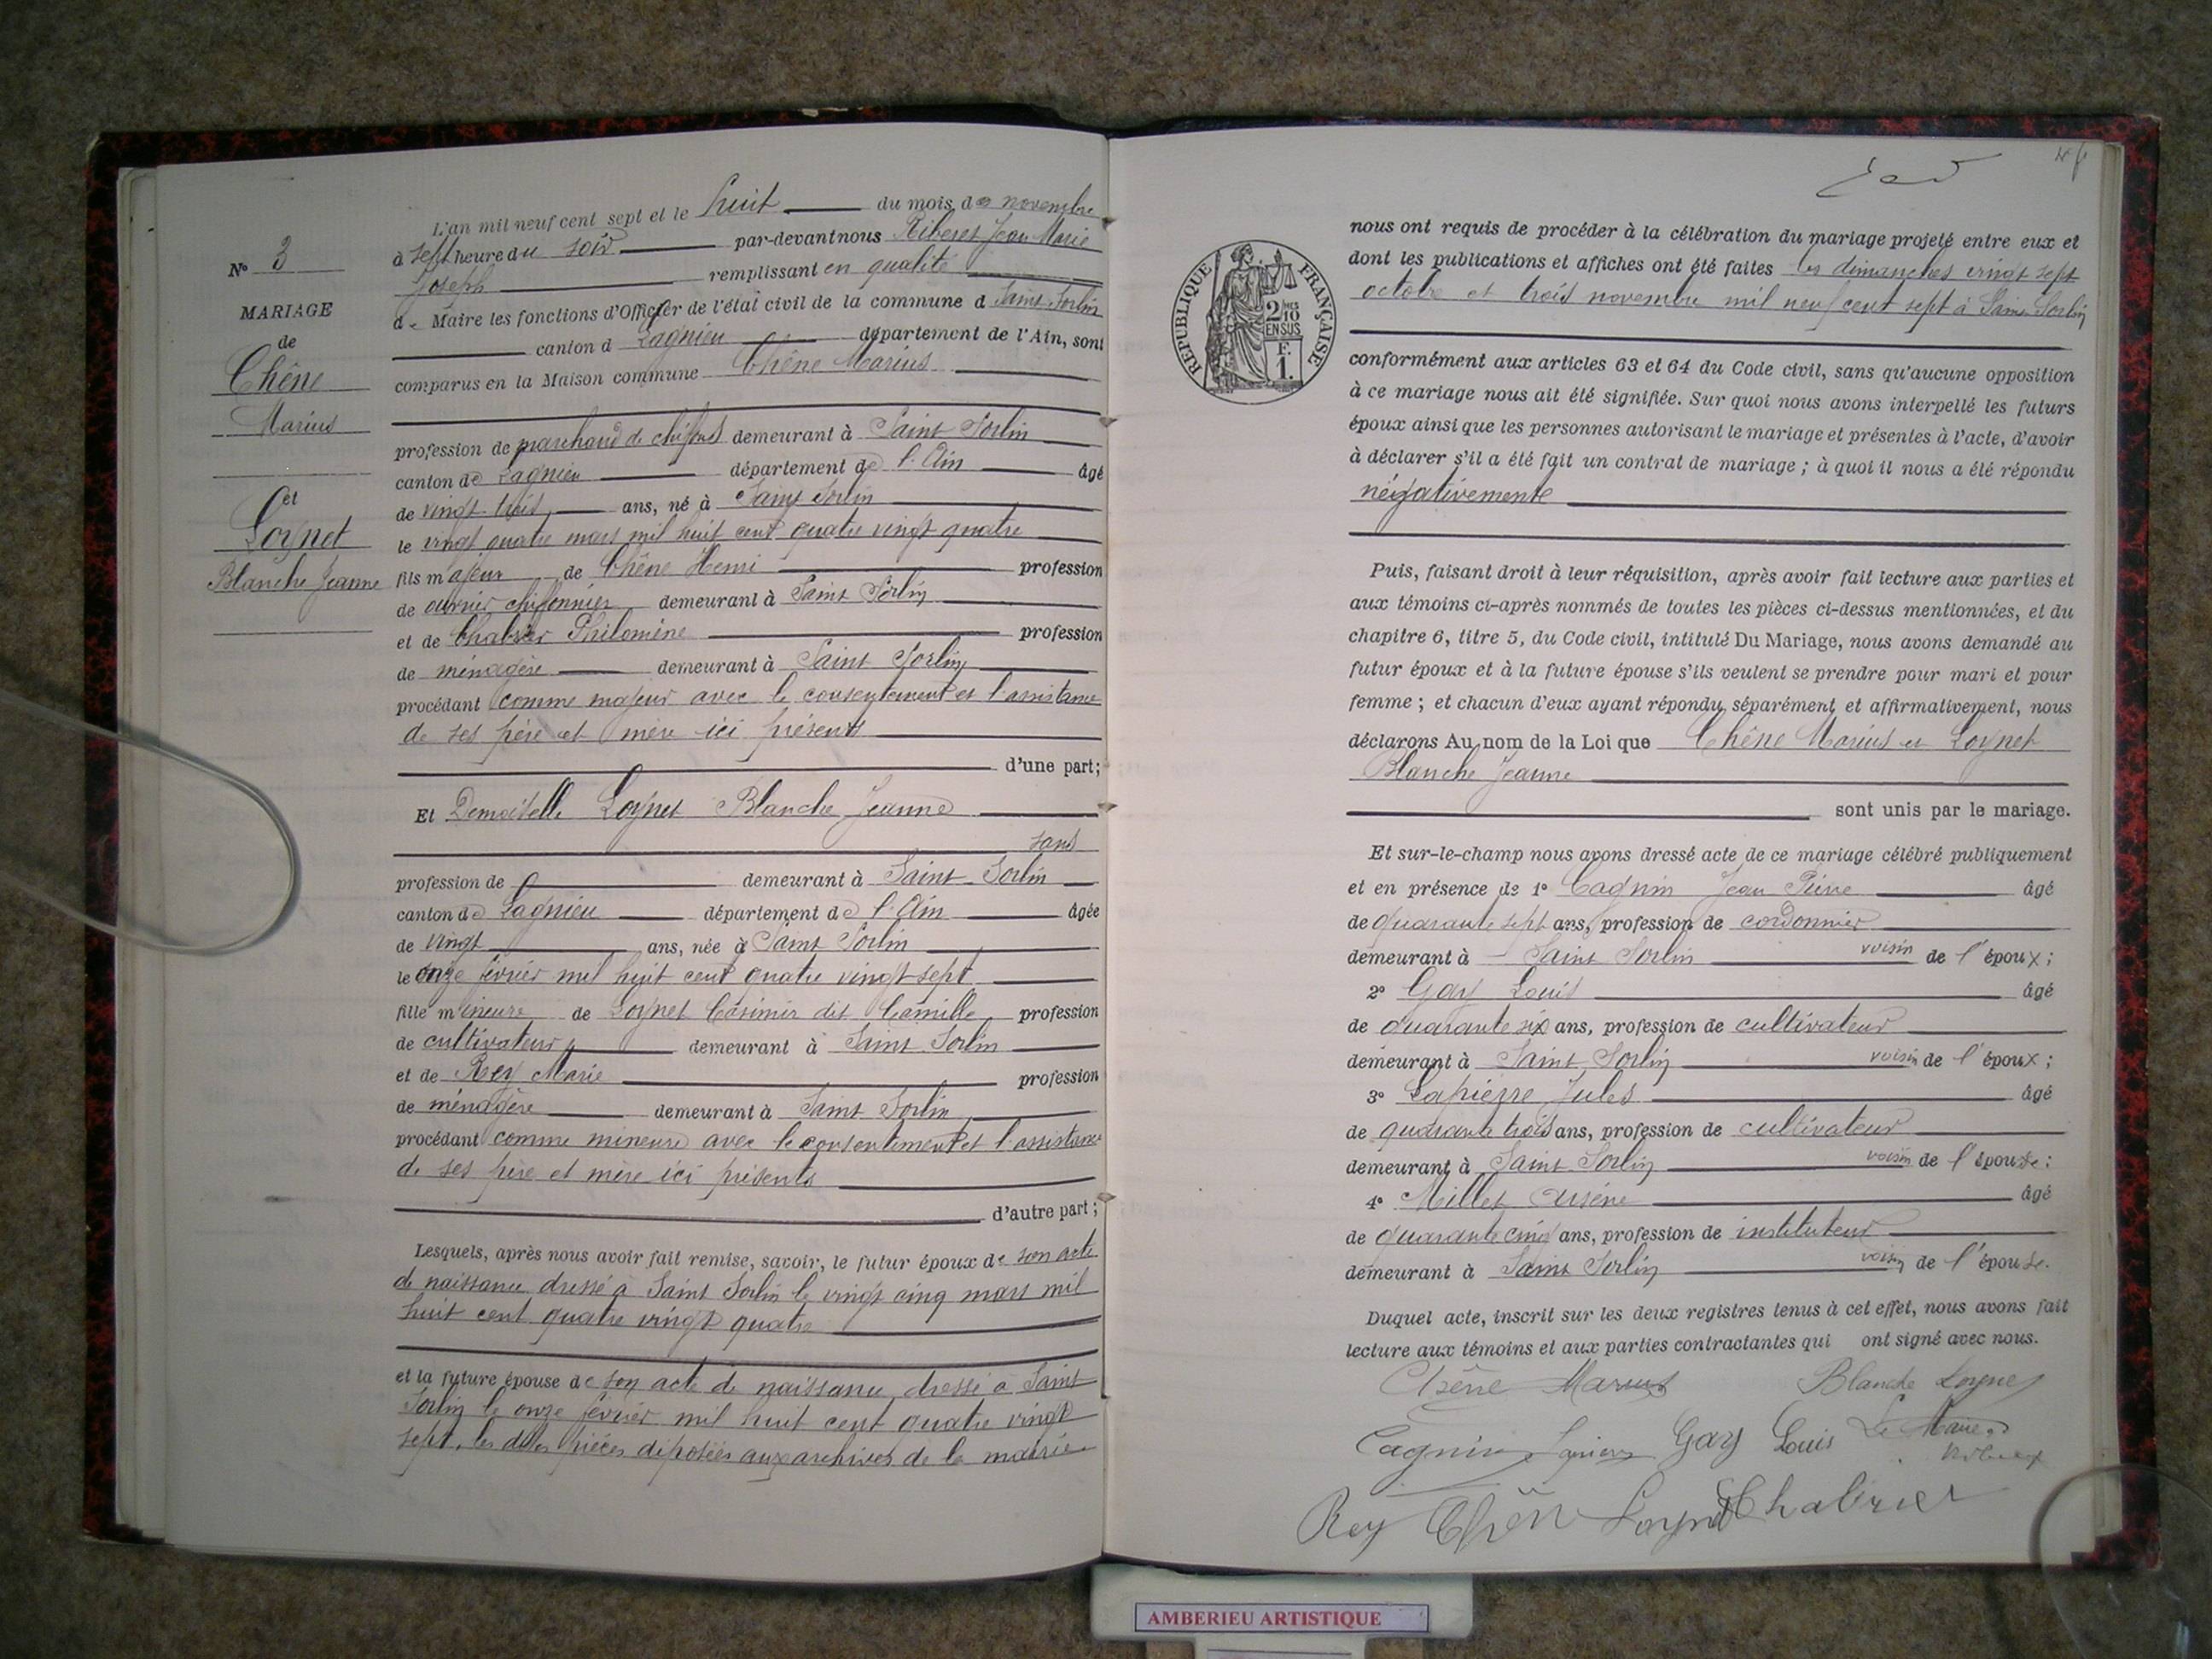 N° 3
MARIAGE
de
Chêne
Marius
et
Loynet
Blanche Jeanne
L'an mil neuf cent sept et le huit du mois de novembre
à sept heure du soir par-devant nous Jean Marie
Joseph remplissant en qualité
de Maire les fonctions d'Officier de l'état civil de la commune d Saint-Sorlin
canton d Lagnieu département de l'Ain, sont
comparus en la Maison commune Chêne Marius
profession de marchand de chiffons demeurant à Saint Sorlin
canton de Lagnieu département de l'Ain âgé
de vingt trois ans, né à Saint Sorlin
le vingt quatre mars mil huit cent quatre vingt quatre
fils majeur de Chêne Henri profession
de ouvrier chiffonnier demeurant à Saint Sorlin
et de Chabrier Philomène profession
de ménagère demeurant à Saint Sorlin
procédant comme majeur avec le consentement et l'assistance
de ses père et mère ici présents
d'une part;
Et Demoiselle Loynet Blanche Jeanne
sans
profession de demeurant à Saint-Sorlin
canton de Lagnieu département de l'Ain âgée
de vingt ans, née à Saint Sorlin
le onze février mil huit cent quatre vingt sept
fille mineure de Loynet Casimir dit Camille profession
de cultivateur demeurant à Saint Sorlin
et de Rey Marie profession
de ménagère demeurant à Saint Sorlin
procédant comme mineure avec le consentement et l'assistance
de ses père et mère ici présents
d'autre part;
Lesquels, après nous avoir fait remise, savoir, le futur époux de son acte
de naissance dressé à Saint Sorlin le vingt cinq mars mil
huit cent quatre vingt quatre
et la future épouse de son acte de naissance dressé à Saint
Sorlin le onze février mil huit cent quatre vingt
sept, les dites pièces déposées aux archives de la mairie
RÉPUBLIQUE FRANÇAISE
2 MES
10
EN SUS
F.
1.
nous ont requis de procéder à la célébration du mariage projeté entre eux et
dont les publications et affiches ont été faites les dimanches vingt sept
octobre et trois novembre mil neuf cent sept à Saint Sorlin
conformément aux articles 63 et 64 du Code civil, sans qu'aucune opposition
à ce mariage nous ait été signifiée. Sur quoi nous avons interpellé les futurs
époux ainsi que les personnes autorisant le mariage et présentes à l'acte, d'avoir
à déclarer s'il a été fait un contrat de mariage ; à quoi il nous a été répondu
négativement
Puis, faisant droit à leur réquisition, après avoir fait lecture aux parties et
aux témoins ci-après nommés de toutes les pièces ci-dessus mentionnées, et du
chapitre 6, titre 5, du Code civil, intitulé Du Mariage, nous avons demandé au
futur époux et à la future épouse s'ils veulent se prendre pour mari et pour
femme ; et chacun d'eux ayant répondu séparément et affirmativement, nous
déclarons Au nom de la Loi que Chêne Marius et Loynet
Blanche Jeanne
sont unis par le mariage.
Et sur-le-champ nous avons dressé acte de ce mariage célébré publiquement
et en présence de 1° Cagnin Jean Pierre âgé
de quarante sept ans, profession de cordonnier
demeurant à Saint Sorlin voisin de l'époux;
2° Gay Louis âgé
de quarante six ans, profession de cultivateur
demeurant à Saint Sorlin voisin de l'époux;
3° Lapierre Jules âgé
de quarante trois ans, profession de cultivateur
demeurant à Saint Sorlin voisin de l'épouse;
4° Millet Arsène âgé
de quarante cinq ans, profession de instituteur
demeurant à Saint Sorlin voisin de l'épouse.
Duquel acte, inscrit sur les deux registres tenus à cet effet, nous avons fait
lecture aux témoins et aux parties contractantes qui ont signé avec nous.
Chêne Marius Blanche Loynet
Cagnin Gay Louis Le Maire
Rey Chêne Loynet Chabrier
AMBERIEU ARTISTIQUE